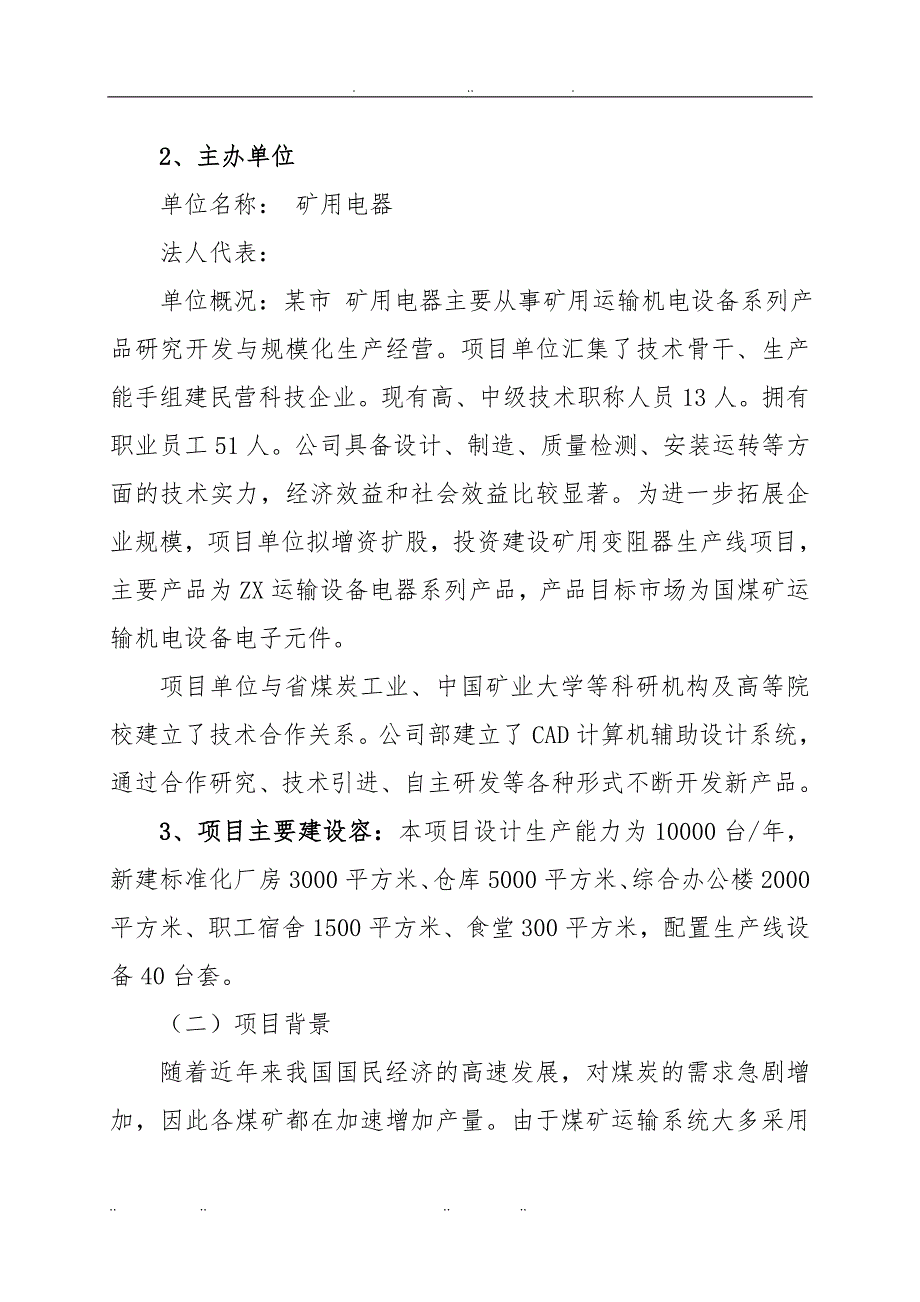 2、主办单位
单位名称： 矿用电器
法人代表：
单位概况：某市 矿用电器主要从事矿用运输机电设备系列产
品研究开发与规模化生产经营。项目单位汇集了技术骨干、生产
能手组建民营科技企业。现有高、中级技术职称人员13人。拥有
职业员工51人。公司具备设计、制造、质量检测、安装运转等方
面的技术实力，经济效益和社会效益比较显著。为进一步拓展企
业规模，项目单位拟增资扩股，投资建设矿用变阻器生产线项目，
主要产品为ZX运输设备电器系列产品，产品目标市场为国煤矿运
输机电设备电子元件。
项目单位与省煤炭工业、中国矿业大学等科研机构及高等院
校建立了技术合作关系。公司部建立了CAD计算机辅助设计系统，
通过合作研究、技术引进、自主研发等各种形式不断开发新产品。
3、项目主要建设容：本项目设计生产能力为10000台/年，
新建标准化厂房3000平方米、仓库5000平方米、综合办公楼2000
平方米、职工宿舍1500平方米、食堂300平方米，配置生产线设
备40台套。
（二）项目背景
随着近年来我国国民经济的高速发展，对煤炭的需求急剧增
加，因此各煤矿都在加速增加产量。由于煤矿运输系统大多采用